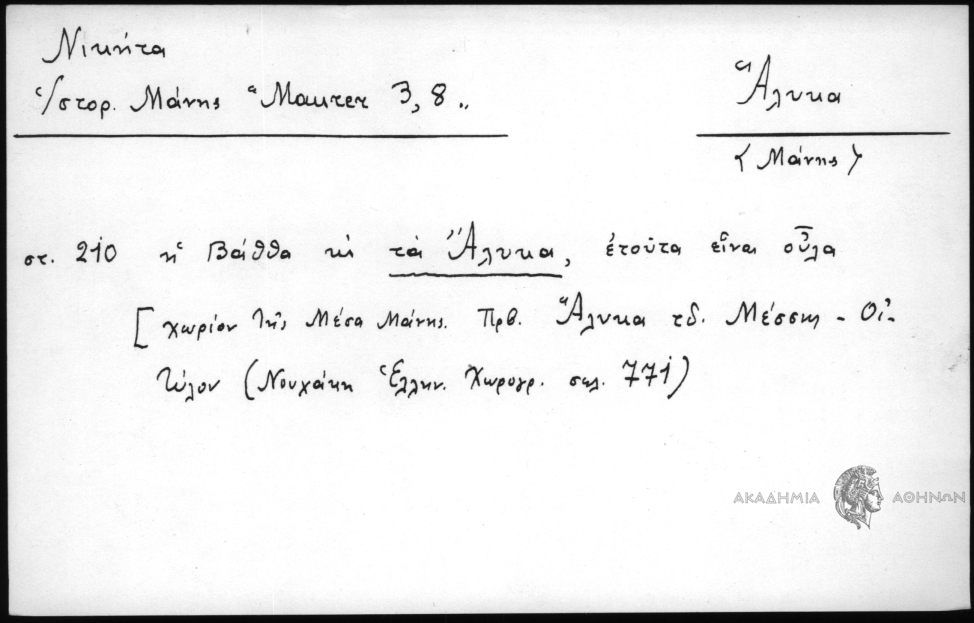 Νικήτα
Ἱστορ. Μάνης "Maurer 3, 8"
Ἄλυκα
(Μάνης)
στ. 210 ἡ Βάθθα κὶ τὰ Ἄλυκα, ἐτοῦτα εἶναι οὗλα
[χωρίον τῆς Μέσα Μάνης. Πρβ. Ἄλυκα τδ. Μέσσης - Οἰ-
τύλον (Νουχάκη Ἑλλην. Χωρογρ. σελ. 771)
ΑΚΑΔΗΜΙΑ ΑΘΗΝΩΝ